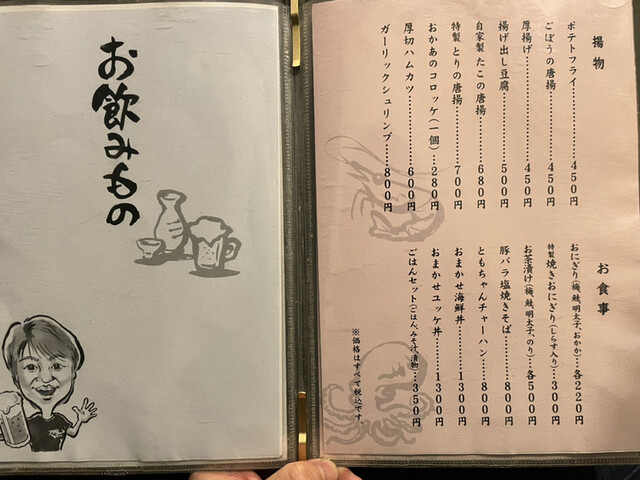 揚物
ポテトフライ………450円
ごぼうの唐揚………450円
厚揚げ………450円
揚げ出し豆腐………500円
自家製 たこの唐揚………680円
特製 とりの唐揚………700円
おかあのコロッケ(一個)…280円
厚切ハムカツ………600円
ガーリックシュリンプ…800円
お食事
おにぎり(梅、鮭、明太子、おかか)…各220円
特製 焼きおにぎり(しらす入り)…300円
お茶漬け(梅、鮭、明太子、のり)…各500円
豚バラ塩焼きそば………800円
ともちゃんチャーハン………800円
おまかせ海鮮丼………1300円
おまかせユッケ丼………1300円
ごはんセット(ごはん、みそ汁、漬物)…350円
※価格はすべて税込です。
お飲みもの